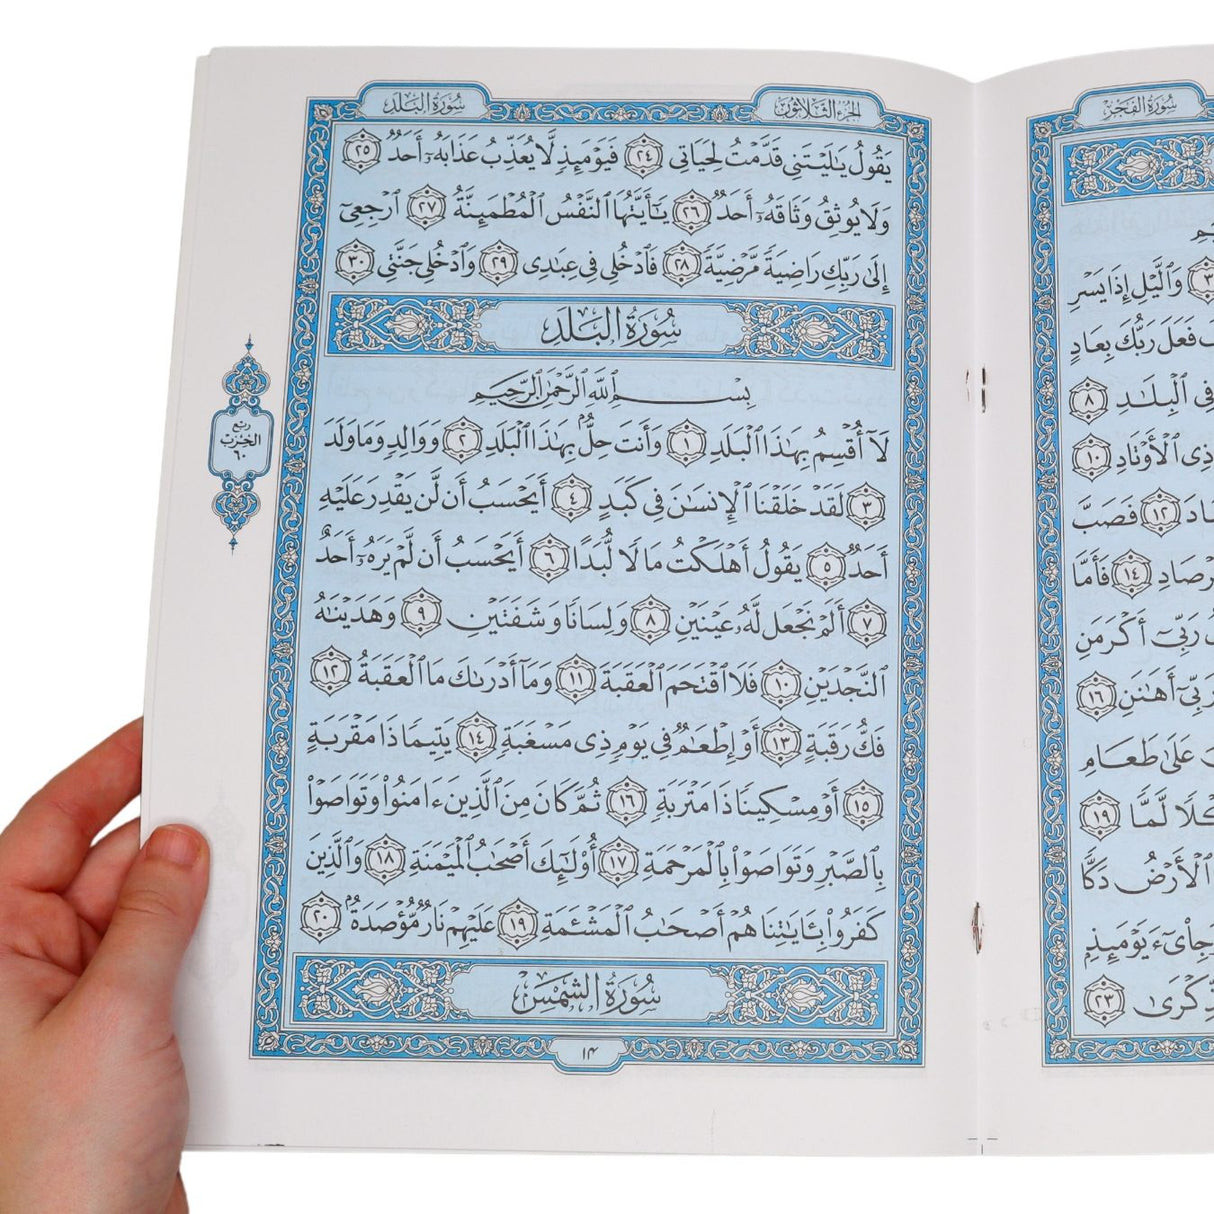 سُورَةُ البَلَدِ
الجُزءُ الثَّلَاثُونَ
يَقُولُ يَٰلَيْتَنِي قَدَّمْتُ لِحَيَاتِي ٢٤ فَيَوْمَئِذٍ لَّا يُعَذِّبُ عَذَابَهُۥٓ أَحَدٌ ٢٥
وَلَا يُوثِقُ وَثَاقَهُۥٓ أَحَدٌ ٢٦ يَٰٓأَيَّتُهَا ٱلنَّفْسُ ٱلْمُطْمَئِنَّةُ ٢٧ ٱرْجِعِيٓ
إِلَىٰ رَبِّكِ رَاضِيَةً مَّرْضِيَّةً ٢٨ فَٱدْخُلِي فِي عِبَٰدِي ٢٩ وَٱدْخُلِي جَنَّتِي ٣٠
سُورَةُ البَلَدِ
بِسْمِ ٱللَّهِ ٱلرَّحْمَٰنِ ٱلرَّحِيمِ
لَآ أُقْسِمُ بِهَٰذَا ٱلْبَلَدِ ١ وَأَنتَ حِلٌّۢ بِهَٰذَا ٱلْبَلَدِ ٢ وَوَالِدٍ وَمَا وَلَدَ
٣ لَقَدْ خَلَقْنَا ٱلْإِنسَٰنَ فِي كَبَدٍ ٤ أَيَحْسَبُ أَن لَّن يَقْدِرَ عَلَيْهِ
أَحَدٌ ٥ يَقُولُ أَهْلَكْتُ مَالًا لُّبَدًا ٦ أَيَحْسَبُ أَن لَّمْ يَرَهُۥٓ أَحَدٌ
٧ أَلَمْ نَجْعَل لَّهُۥ عَيْنَيْنِ ٨ وَلِسَانًا وَشَفَتَيْنِ ٩ وَهَدَيْنَٰهُ
ٱلنَّجْدَيْنِ ١٠ فَلَا ٱقْتَحَمَ ٱلْعَقَبَةَ ١١ وَمَآ أَدْرَىٰكَ مَا ٱلْعَقَبَةُ ١٢
فَكُّ رَقَبَةٍ ١٣ أَوْ إِطْعَٰمٌ فِي يَوْمٍ ذِي مَسْغَبَةٍ ١٤ يَتِيمًا ذَا مَقْرَبَةٍ
١٥ أَوْ مِسْكِينًا ذَا مَتْرَبَةٍ ١٦ ثُمَّ كَانَ مِنَ ٱلَّذِينَ ءَامَنُوا۟ وَتَوَاصَوْا۟
بِٱلصَّبْرِ وَتَوَاصَوْا۟ بِٱلْمَرْحَمَةِ ١٧ أُو۟لَٰٓئِكَ أَصْحَٰبُ ٱلْمَيْمَنَةِ ١٨ وَٱلَّذِينَ
كَفَرُوا۟ بِـَٔايَٰتِنَا هُمْ أَصْحَٰبُ ٱلْمَشْـَٔمَةِ ١٩ عَلَيْهِمْ نَارٌ مُّؤْصَدَةٌۢ ٢٠
سُورَةُ الشَّمْسِ
١٤
رُبع
الحِزب
٦٠
سُورَةُ الفَجْرِ
٣ وَٱلَّيْلِ إِذَا يَسْرِ
فَعَلَ رَبُّكَ بِعَادٍ
فِي ٱلْبِلَٰدِ ٨
ذِي ٱلْأَوْتَادِ ١٠
١٢ فَصَبَّ
١٤ فَأَمَّا
رَبِّيٓ أَكْرَمَنِ
رَبِّيٓ أَهَٰنَنِ ١٦
عَلَىٰ طَعَامِ
لَّمًّا ١٩
ٱلْأَرْضُ دَكًّا
وَجِا۟يٓءَ يَوْمَئِذٍۭ
٢٣